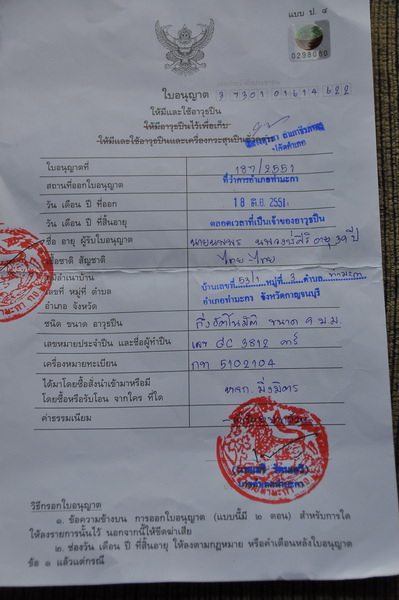 แบบ ป. ๔
0298060
ใบอนุญาต 3 7301 01614 622
ให้มีและใช้อาวุธปืน
ให้มีอาวุธปืนไว้เพื่อเก็บ
ให้มีและใช้อาวุธปืนและเครื่องกระสุนปืน
ปลัดอำเภอ
ใบอนุญาตที่ 187/2551
สถานที่ออกใบอนุญาต ที่ว่าการอำเภอท่ามะกา
วัน เดือน ปี ที่ออก 18 ส.ย. 2551
วัน เดือน ปี ที่สิ้นอายุ ตลอดเวลาที่เป็นเจ้าของอาวุธปืน
ชื่อ อายุ ผู้รับใบอนุญาต อายุ 39 ปี
เชื้อชาติ สัญชาติ ไทย ไทย
ตำบล ท่ามะกา
เลขที่ หมู่ที่ ตำบล บ้านเลขที่ 53/1 หมู่ที่ 3
อำเภอ จังหวัด อำเภอท่ามะกา จังหวัดกาญจนบุรี
ชนิด ขนาด อาวุธปืน กึ่งอัตโนมัติ ขนาด 9 ม.ม.
เลขหมายประจำปืน และชื่อผู้ทำปืน เลข
เครื่องหมายทะเบียน กท 5102104
ได้มาโดยซื้อสั่งนำเข้ามาหรือมี หจก. มิ่งมิตร
โดยซื้อหรือรับโอน จากใคร ที่ใด
ค่าธรรมเนียม
นายอำเภอท่ามะกา
วิธีกรอกใบอนุญาต
๑. ข้อความข้างบน การออกใบอนุญาต (แบบนี้มี ๒ ตอน) สำหรับการใด
ให้ลงรายการนั้นไว้ นอกจากนี้ให้ขีดฆ่าเสีย
๒. ช่องวัน เดือน ปี ที่สิ้นอายุ ให้ลงตามกฎหมาย หรือคำเตือนหลังใบอนุญาต
ข้อ ๑ แล้วแต่กรณี